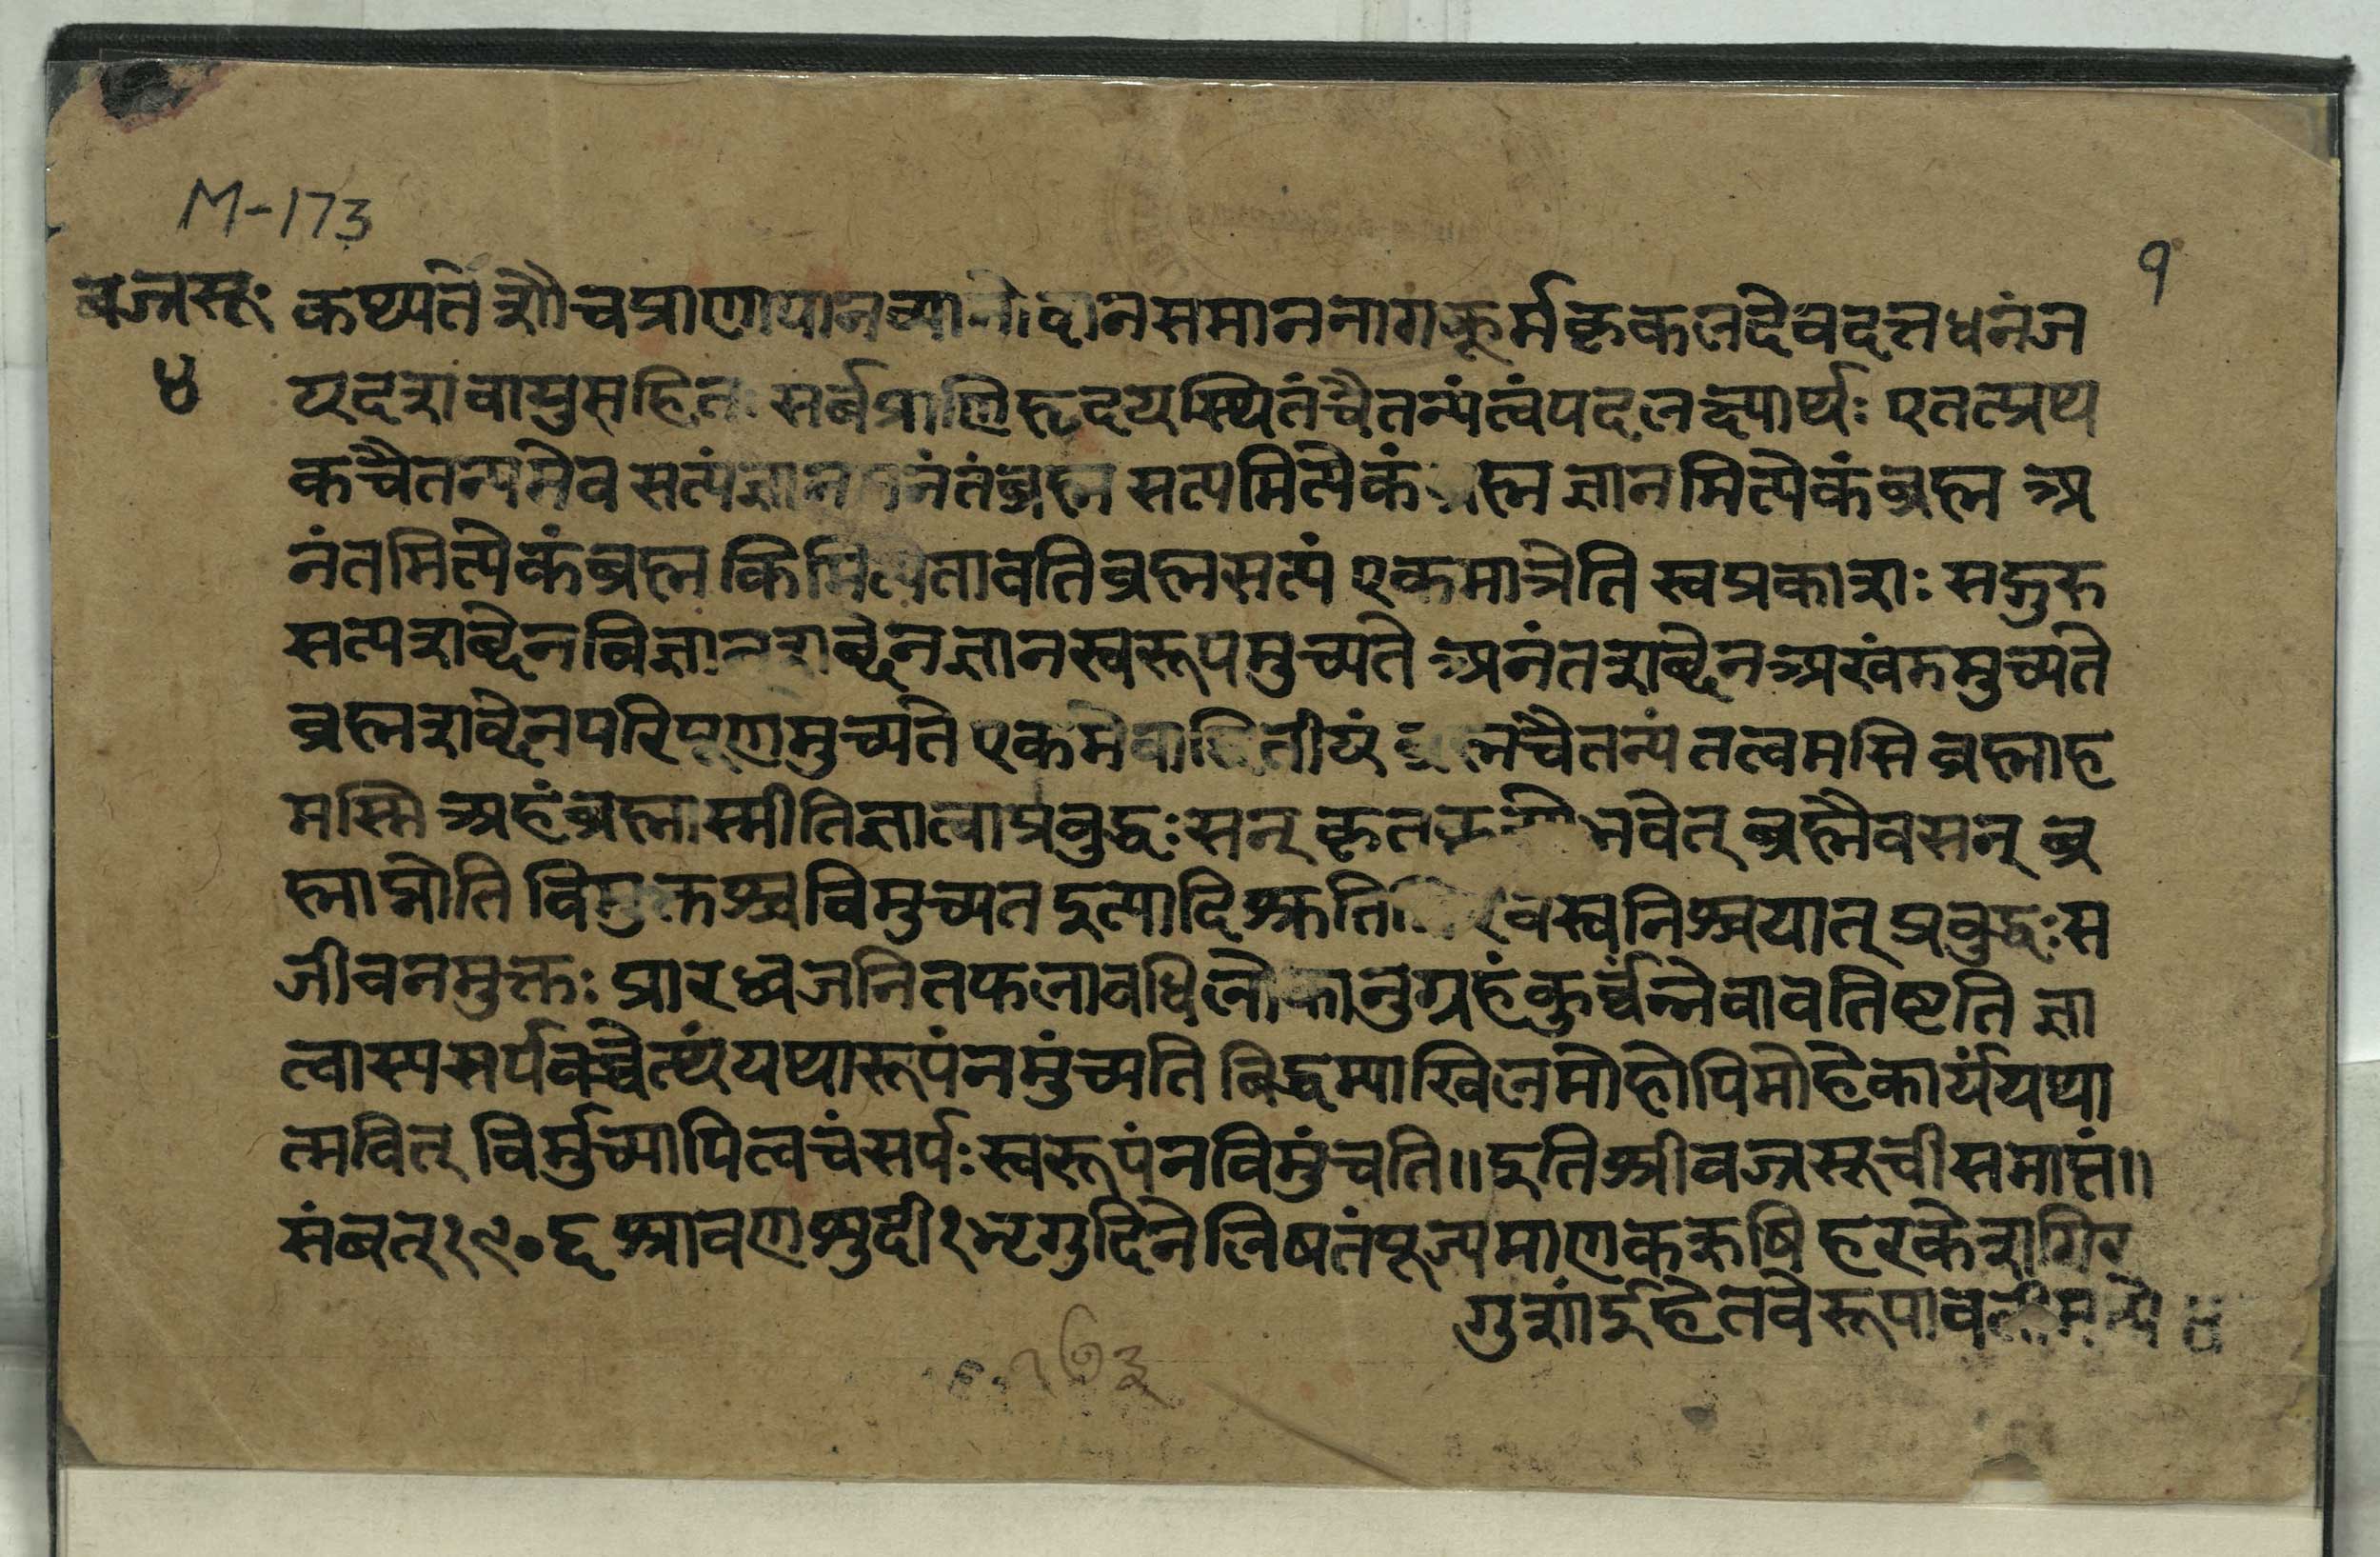 M-173
१
वज्रसूः कथ्यते शौचप्राणापानव्यानोदानसमाननागकूर्मकृकलदेवदत्तधनंज
४ यदशवायुसहितः सर्वप्राणिहृदयस्थितंचैतन्यंत्वंपदलक्ष्यार्थः एतत्प्रत्य
कचैतन्यमेव सत्यंज्ञानमनंतंब्रह्म सत्यमित्येकंब्रह्म ज्ञानमित्येकंब्रह्म अ
नंतमित्येकंब्रह्म किमित्येतावतिब्रह्मसत्यं एकमात्रेति स्वप्रकाशः सद्गुरु
सत्यशब्देनविज्ञानशब्देनज्ञानस्वरूपमुच्यते अनंतशब्देनअखंडमुच्यते
ब्रह्मशब्देनपरिपूणमुच्यते एकमेवाद्वितीयं ब्रह्मचैतन्यं तत्वमसि ब्रह्माह
मस्मि अहंब्रह्मास्मीतिज्ञात्वाप्रबुद्धःसन् कृत भवेत् ब्रह्मैवसन् ब्र
ह्माप्नोति विमुक्तश्चविमुच्यत इत्यादिश्रुति स्वनिश्चयात् प्रबुद्धःस
जीवनमुक्तः प्रारब्धजनितफलावधिलोकानुग्रहंकुर्वन्नेवावतिष्टति ज्ञा
त्वास्पसर्पवच्चेत्थंयथारूपंनमुंच्यति विद्धम्याखिलमोहोपिमोहेकार्ययथा
त्मवित् विर्मुच्यापित्वचंसर्पःस्वरूपंनविमुंचति॥इतिश्रीवज्रसूचीसमाप्तं॥
संवत्१९०६ श्रावणशुदी१भृगुदिनेलिषतंपूज्यमाणकऋषि हरकेशागिर
गुशांईहेतवेरूपावलीमध्ये ४
१७३